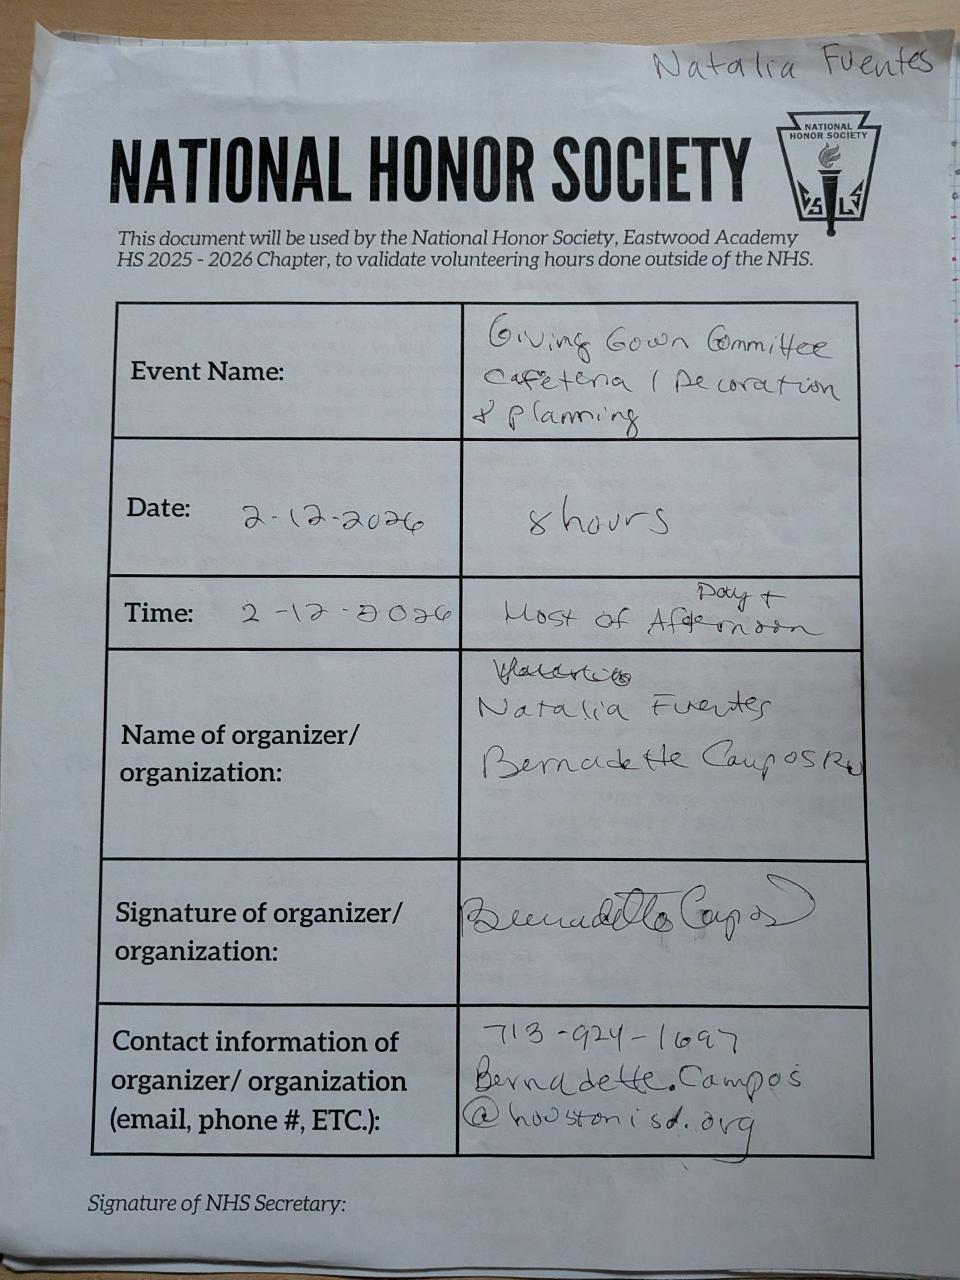 Natalia Fuentes
NATIONAL HONOR SOCIETY
NATIONAL
HONOR SOCIETY
S L S
This document will be used by the National Honor Society, Eastwood Academy
HS 2025 - 2026 Chapter, to validate volunteering hours done outside of the NHS.
Event Name:
Giving Gown Committee
Cafeteria / Decoration
& planning
Date: 2-12-2026
8 hours
Time: 2-12-2026
Day +
Most of Afternoon
Name of organizer/
organization:
Natalia Fuentes
Bernadette Campos
Signature of organizer/
organization:
Bernadette Campos
Contact information of
organizer/ organization
(email, phone #, ETC.):
713-924-1697
Bernadette.Campos
@houstonisd.org
Signature of NHS Secretary: